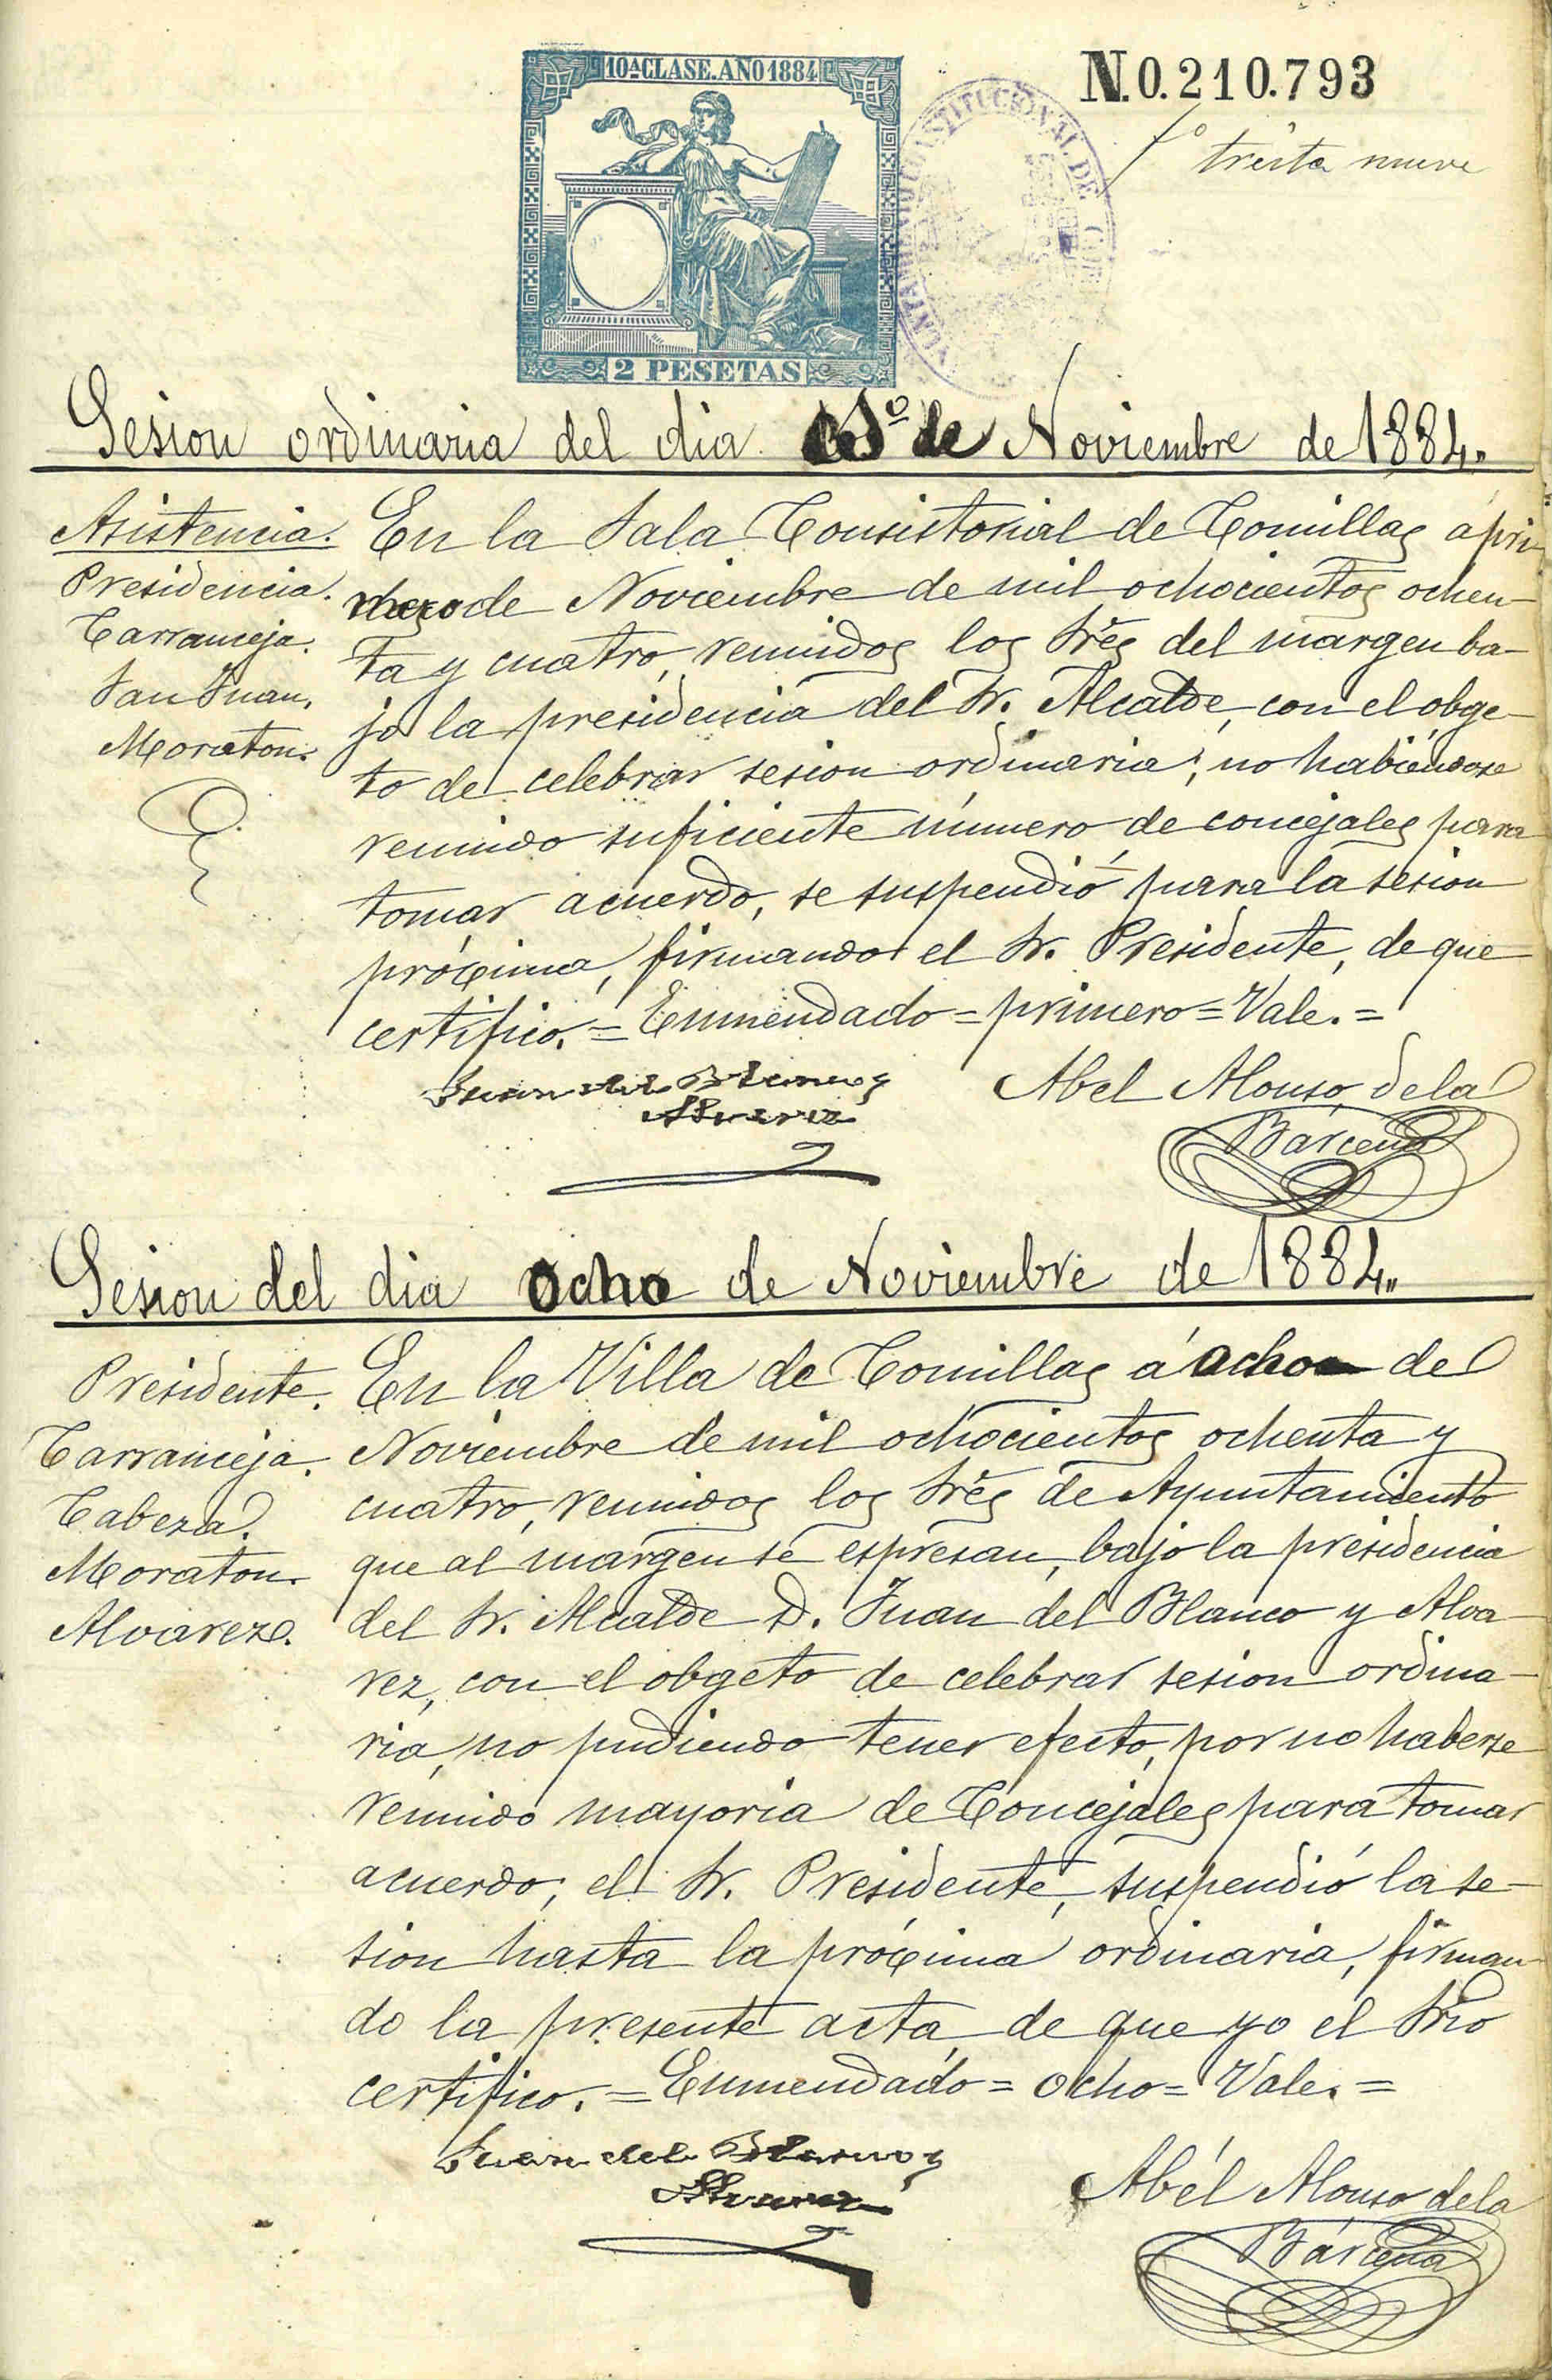 10ª CLASE. AÑO 1884
N.0.210.793
fº treita nueve
CONSTITUCIONAL DE
2 PESETAS
Sesion ordinaria del dia 1º de Noviembre de 1884.
Asistencia.
Presidencia.
Carranceja.
San Juan.
Moraton.
En la Sala Consistorial de Comillas á pri-
mero de Noviembre de mil ochocientos ochen-
ta y cuatro, reunidos los Sres del margen ba-
jo la presidencia del Sr. Alcalde, con el obge-
to de celebrar sesion ordinaria; no habiéndose
reunido suficiente número de concejales para
tomar acuerdo, se suspendió para la sesion
próxima, firmando el Sr. Presidente, de que
certifico. = Enmendado = primero = Vale. =
Juan del Blanco y
Alvarez
Abel Alonso de la
Barcena
Sesion del dia ocho de Noviembre de 1884.
Presidente.
Carranceja.
Cabeza.
Moraton.
Alvarez.
En la Villa de Comillas á ocho de
Noviembre de mil ochocientos ochenta y
cuatro, reunidos los Sres de Ayuntamiento
que al margen se espresan, bajo la presidencia
del Sr. Alcalde D. Juan del Blanco y Alva-
rez, con el obgeto de celebrar sesion ordina-
ria, no pudiendo tener efecto, por no haberse
reunido mayoria de Concejales para tomar
acuerdo; el Sr. Presidente, suspendió la se-
sion hasta la próxima ordinaria, firman-
do la presente acta, de que yo el Srio
certifico. = Enmendado = ocho = Vale. =
Juan del Blanco y
Alvarez
Abél Alonso de la
Bárcena